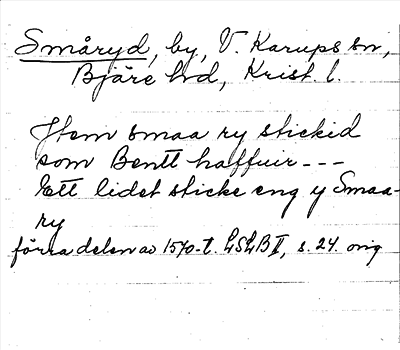 Småryd, by, V. Karups sn,
Bjäre hd, Krist. l.
Item smaa ry stickid
som Bentt haffuir ---
Ett lidet sticke eng y Smaa-
ry
förra delen av 1570-t. LSLB II, s. 24. orig